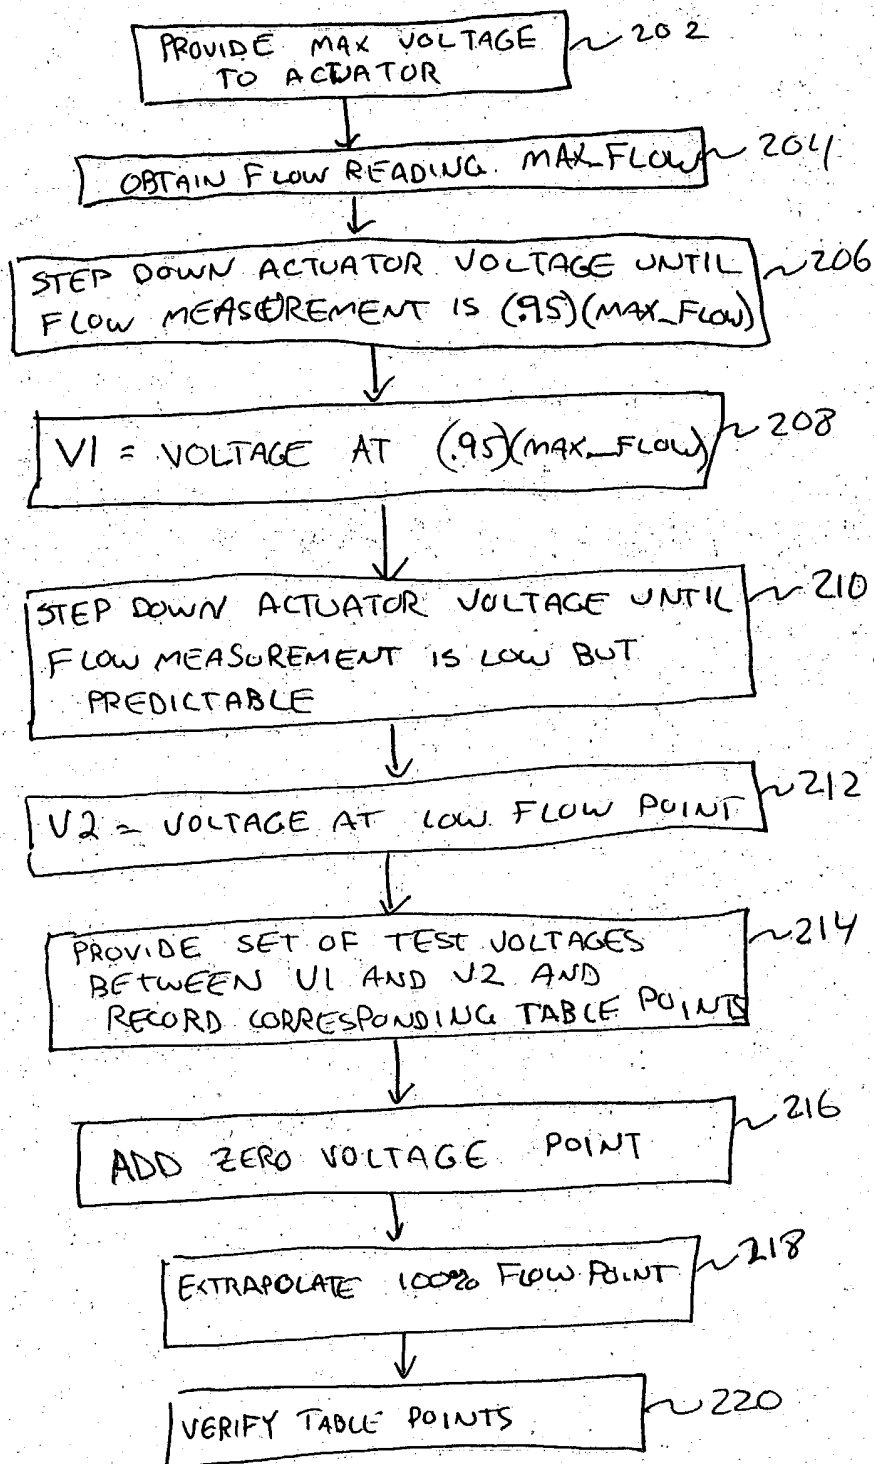 PROVIDE MAX VOLTAGE
TO ACTUATOR
202
OBTAIN FLOW READING. MAX_FLOW
204
STEP DOWN ACTUATOR VOLTAGE UNTIL
FLOW MEASUREMENT IS (.95)(MAX_FLOW)
206
V1 = VOLTAGE AT (.95)(MAX_FLOW)
208
STEP DOWN ACTUATOR VOLTAGE UNTIL
FLOW MEASUREMENT IS LOW BUT
PREDICTABLE
210
V2 = VOLTAGE AT LOW FLOW POINT
212
PROVIDE SET OF TEST VOLTAGES
BETWEEN V1 AND V2 AND
RECORD CORRESPONDING TABLE POINTS
214
ADD ZERO VOLTAGE POINT
216
EXTRAPOLATE 100% FLOW POINT
218
VERIFY TABLE POINTS
220